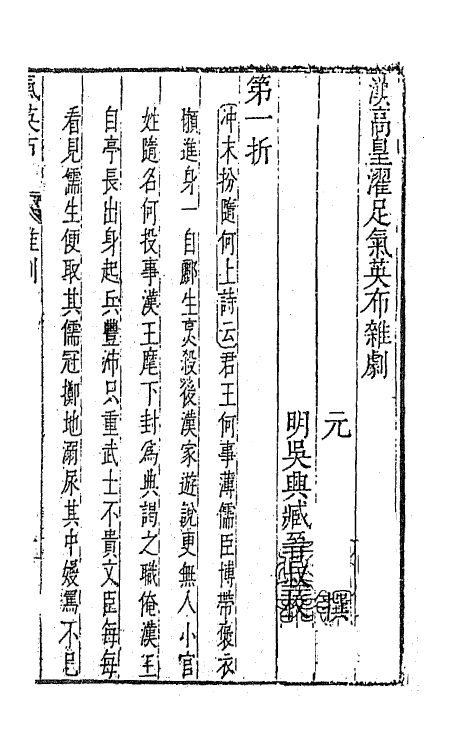 漢高皇濯足氣英布雜劇
元　　　撰
明吳興臧晉叔校
第一折
冲末扮隨何上詩云君王何事薄儒臣博帶褒衣
懶進身一自酈生烹殺後漢家遊說更無人小官
姓隨名何投事漢王麾下封爲典謁之職俺漢王
自亭長出身起兵豐沛只重武士不貴文臣每每
看見儒生便取其儒冠擲地溺尿其中嫚罵不已
氣英布　雜劇